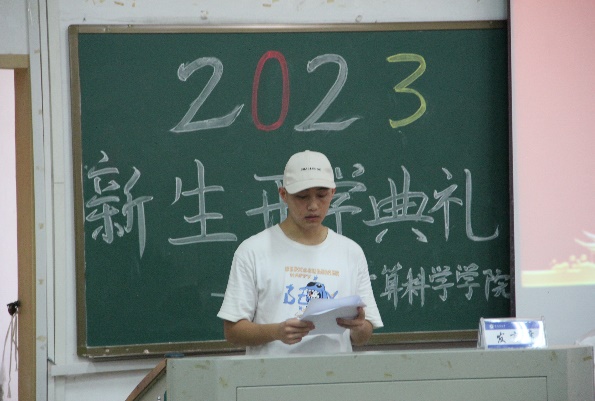 2023
新生开学典礼
算科学学院